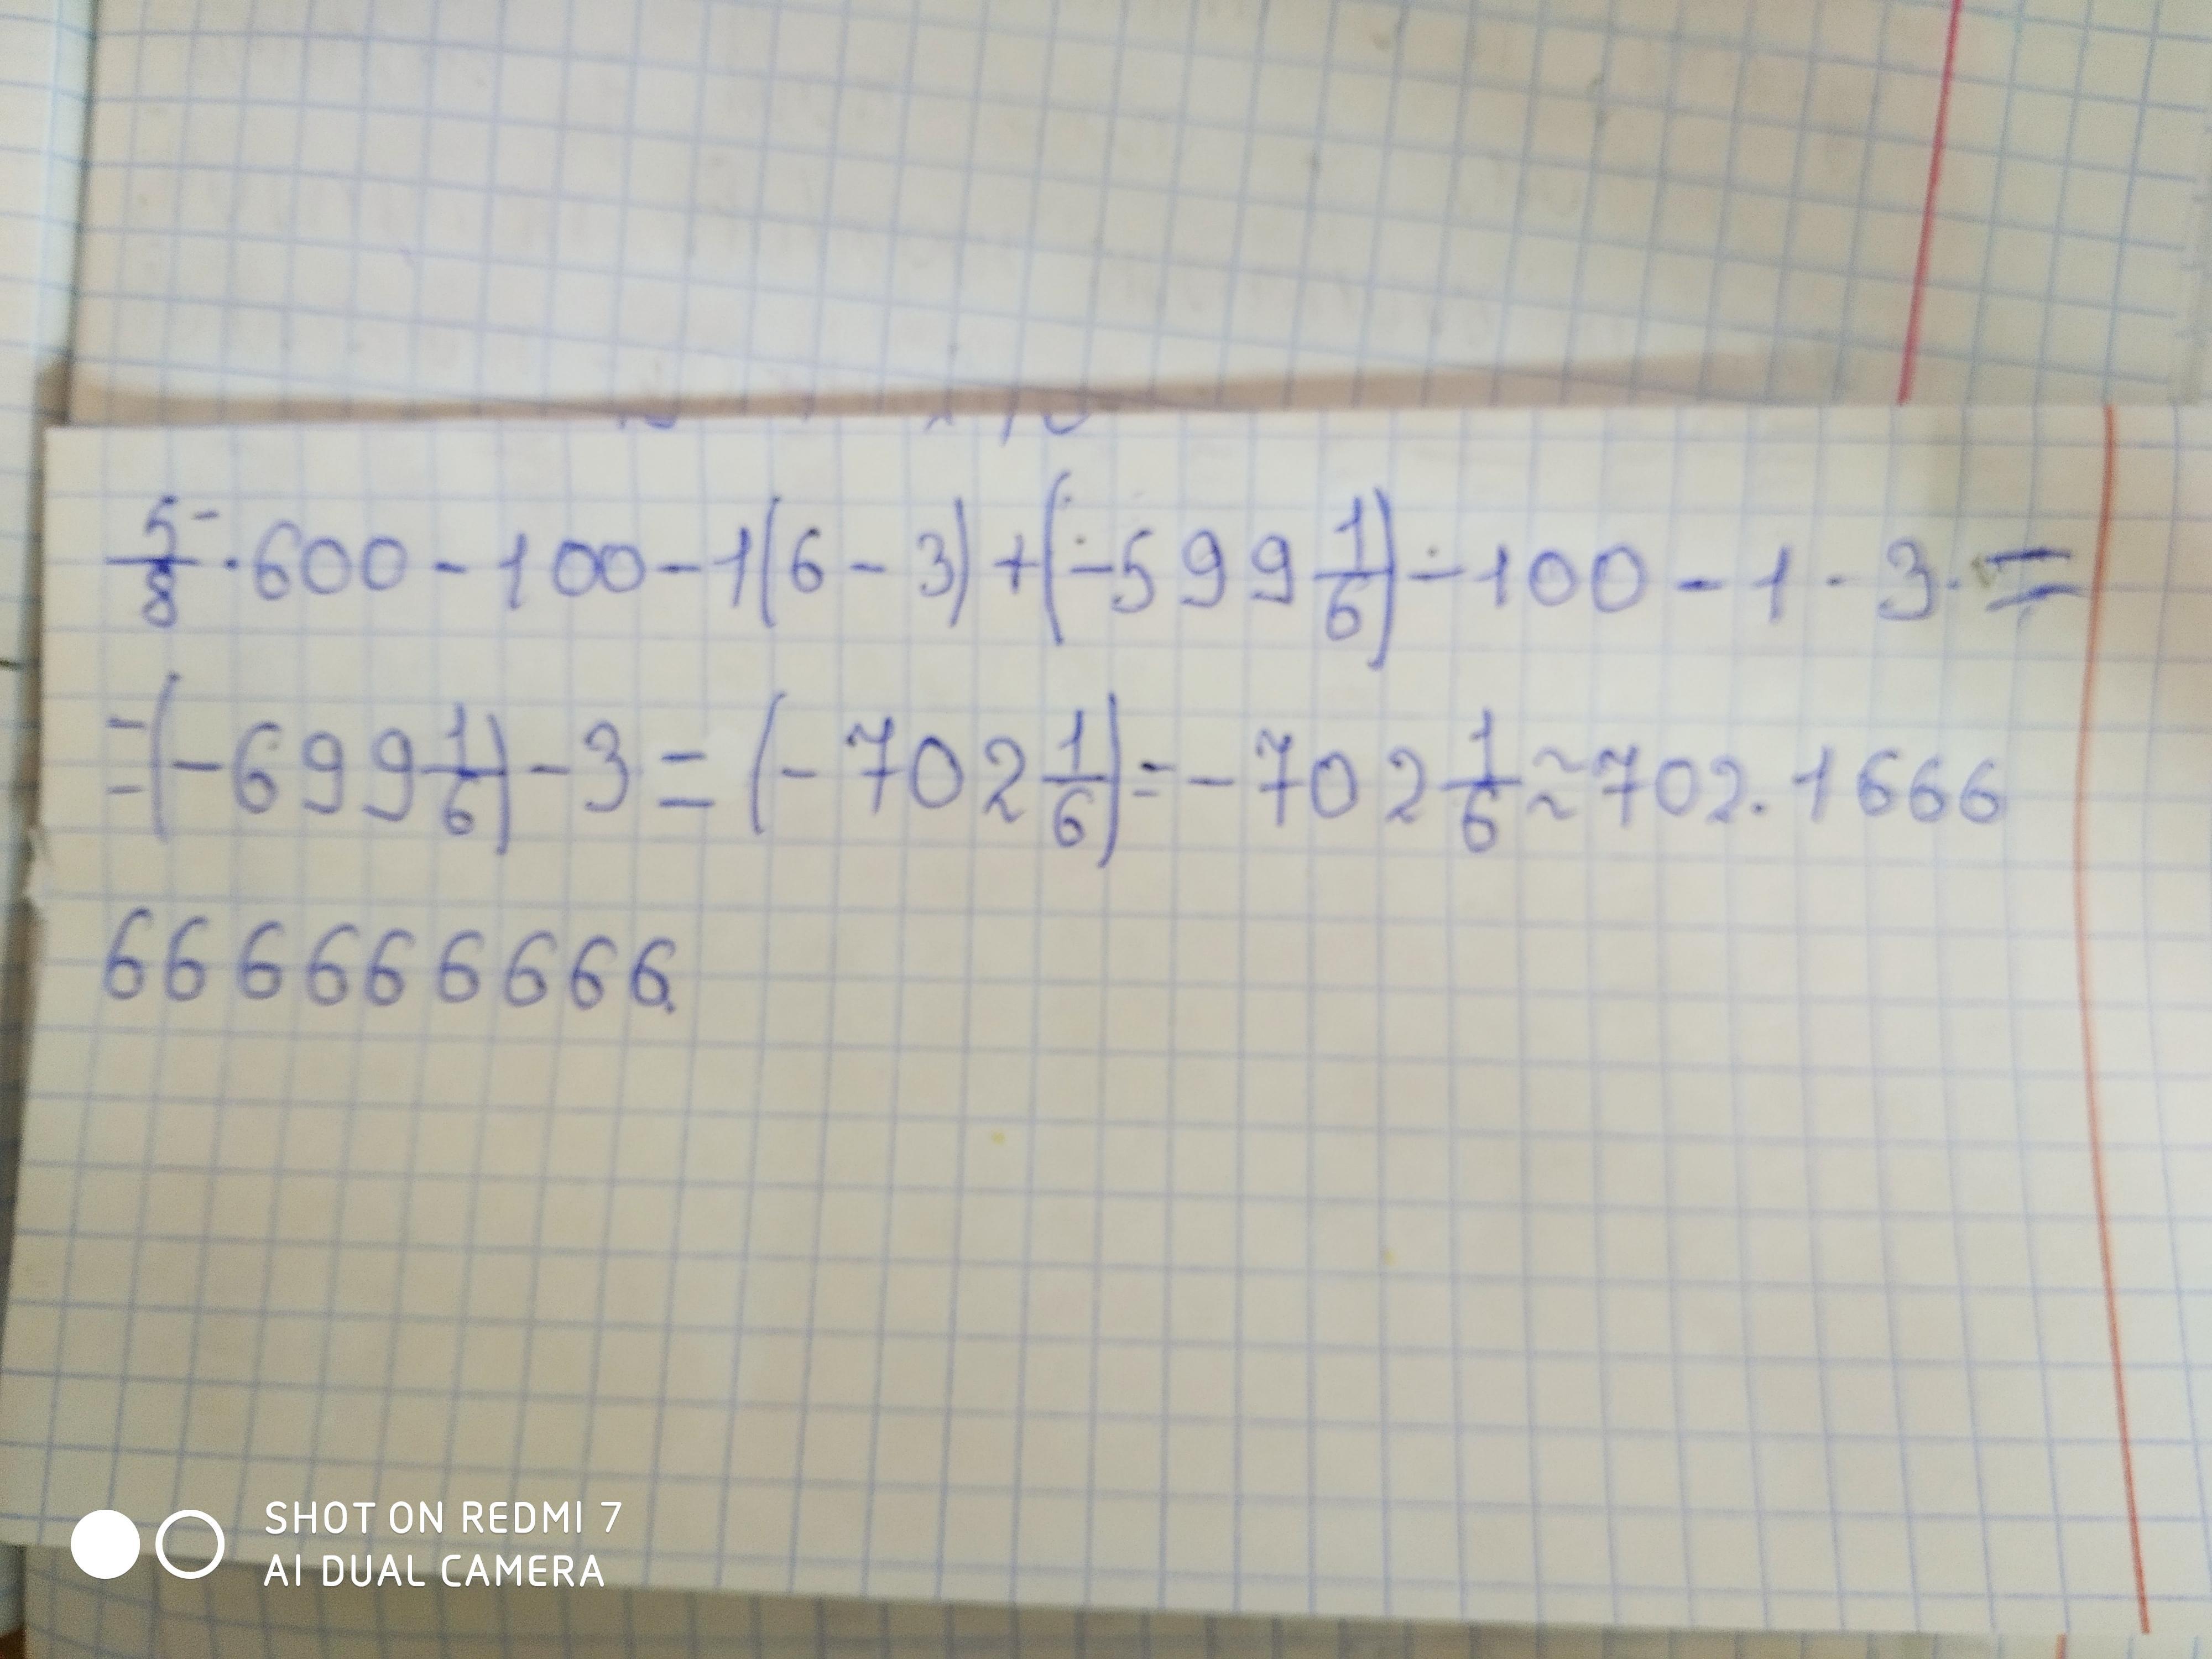 5/8 · 600 - 100 - 1(6 - 3) + (-599 1/6) - 100 - 1 · 3 =
= (-699 1/6) - 3 = (-702 1/6) = -702 1/6 ≈ 702.1666
666666666.
SHOT ON REDMI 7
AI DUAL CAMERA